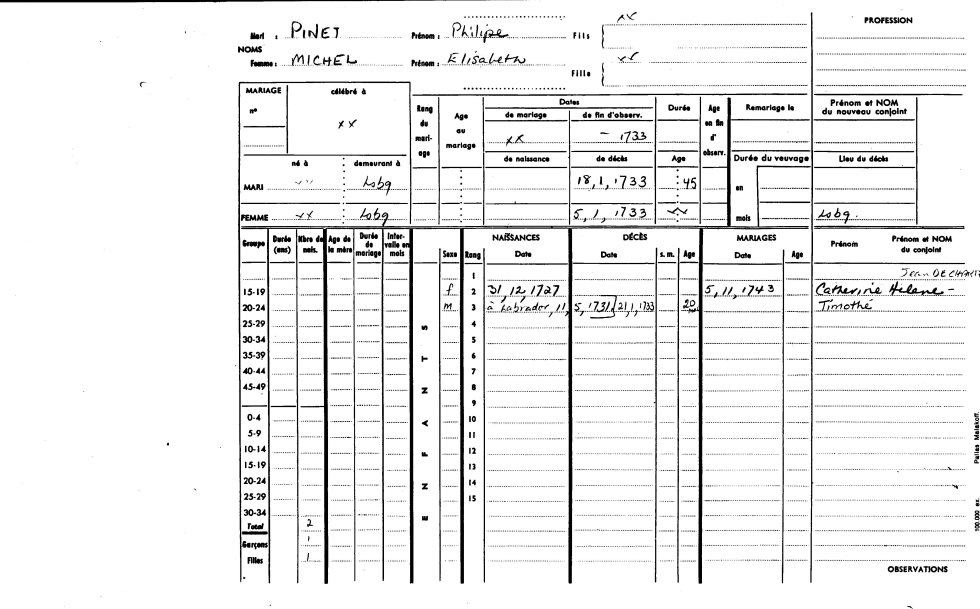 PROFESSION
Mari : PINET Prénom : Philipe Fils xx
NOMS
Femme : MICHEL Prénom : Elisabeth xx
Fille
MARIAGE célébré à
n° xx
Rang du mariage
Age au mariage
Dates
de mariage de fin d'observ.
xx - 1733
Durée
Age en fin d'observ.
Remariage le
Prénom et NOM du nouveau conjoint
né à demeurant à
de naissance de décès Age
Durée du veuvage
Lieu du décès
MARI xx Lsbg 18,1,1733 45 en
FEMME xx Lsbg 5,1,1733 xx mois Lsbg.
Groupe Durée (ans) Nbre de nais. Age de la mère Durée de mariage Intervalle en mois
ENFANTS
Sexe Rang
NAISSANCES
Date
DÉCÈS
Date s. m. Age
MARIAGES
Date Age
Prénom Prénom et NOM du conjoint
1 Jean
15-19 f 2 31,12,1727 5,11,1743 Catherine Helene -
20-24 m 3 à Labrador, 11, 5, 1731 21,1,1733 20 Timothé
25-29 4
30-34 5
35-39 6
40-44 7
45-49 8
9
0-4 10
5-9 11
10-14 12
15-19 13
20-24 14
25-29 15
30-34
Total 2
Garçons 1
Filles 1
OBSERVATIONS
100.000 ex.